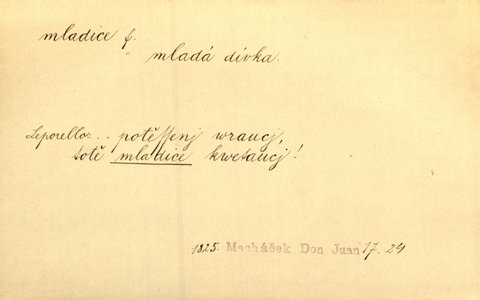 mladice f.
mladá dívka.
Leporello: .. potěssenj wraucj,
totě mladice kwetaucj!
1825. Macháček Don Juan 17. 24